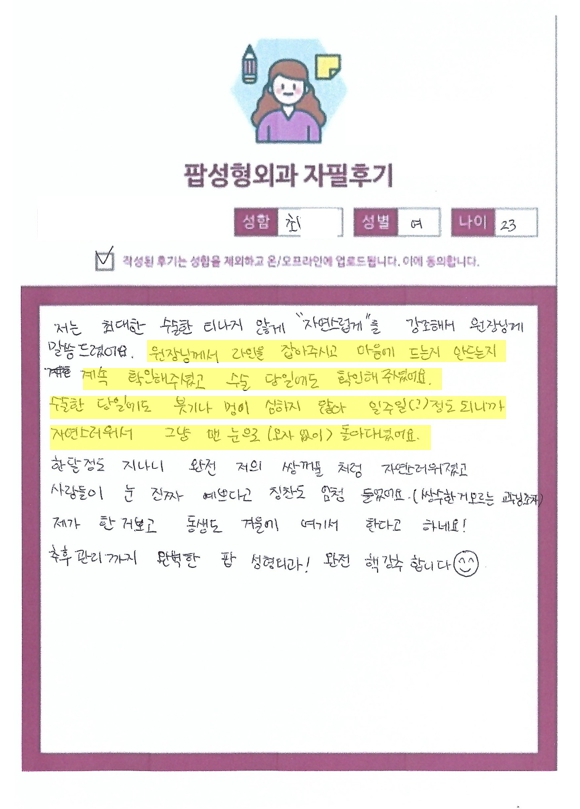 팝성형외과 자필후기
성함 최 성별 여 나이 23
작성된 후기는 성함을 제외하고 온/오프라인에 업로드됩니다. 이에 동의합니다.
저는 최대한 수술한 티나지 않게 "자연스럽게"를 강조해서 원장님께
말씀드렸어요. 원장님께서 라인을 잡아주시고 마음에 드는지 안드는지
계속 확인해주셨고 수술 당일에도 확인해 주셨어요.
수술한 당일에도 붓기나 멍이 심하지 않아 일주일(?)정도 되니까
자연스러워서 그냥 맨 눈으로 (모자 없이) 돌아다녔어요.
한달정도 지나니 완전 저의 쌍꺼풀 처럼 자연스러워졌고
사람들이 눈 진짜 예쁘다고 칭찬도 엄청 들었어요. (쌍수한거 모르는 교수님조차)
제가 한 거보고 동생도 겨울에 여기서 한다고 하네요!
추후 관리까지 완벽한 팝 성형외과! 완전 핵강추 합니다